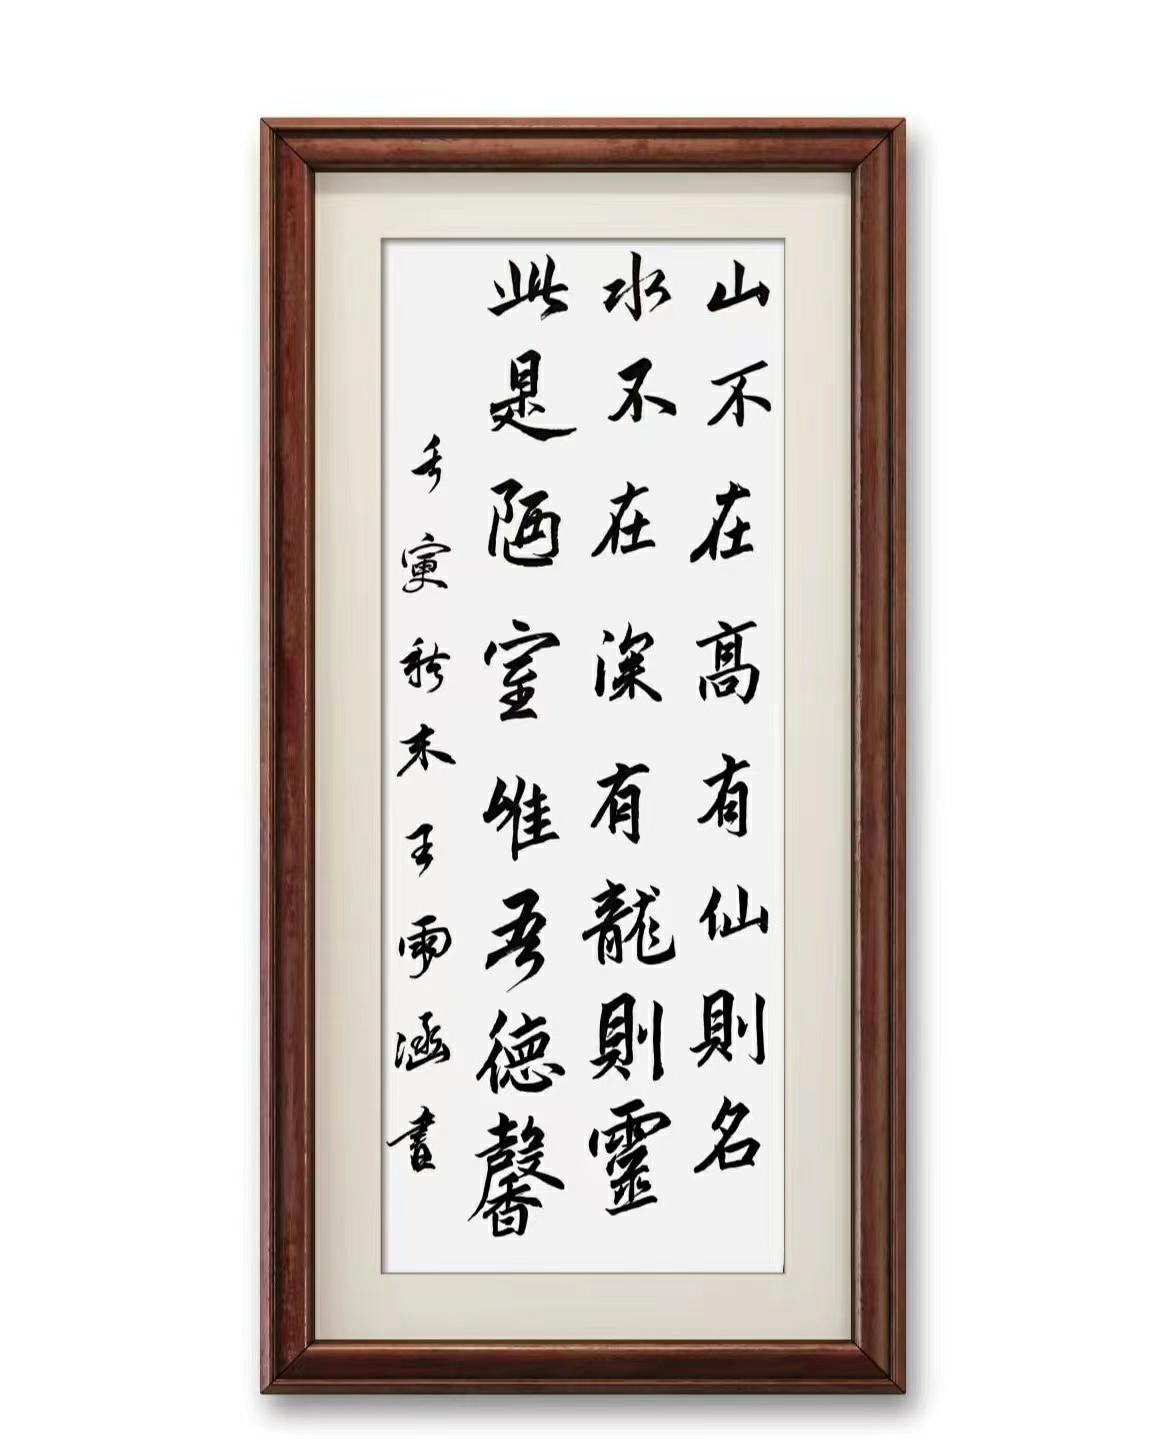 山不在高有仙則名
水不在深有龍則靈
此是陋室惟吾德馨
壬寅秋末王雨涵書